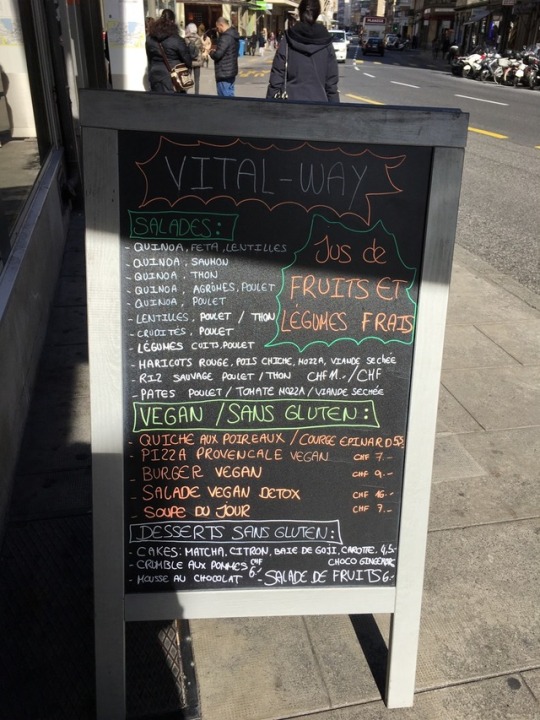 VITAL-WAY
SALADES:
- QUINOA, FETA, LENTILLES
- QUINOA, SAUMON
- QUINOA, THON
- QUINOA, AGRÛMES, POULET
- QUINOA, POULET
- LENTILLES, POULET / THON
- CRUDITÉS, POULET
- LÉGUMES CUITS, POULET
- HARICOTS ROUGE, POIS CHICHE, MOZZA, VIANDE SECHÉE
- RIZ SAUVAGE POULET / THON CHF 11.- / CHF
- PATES POULET / TOMATE MOZZA / VIANDE SECHÉE
Jus de
FRUITS ET
LÉGUMES FRAIS
VEGAN / SANS GLUTEN:
- QUICHE AUX POIREAUX / COURGE EPINARD
- PIZZA PROVENCALE VEGAN CHF 7.-
- BURGER VEGAN CHF 9.-
- SALADE VEGAN DETOX CHF 16.-
- SOUPE DU JOUR CHF 7.-
DESSERTS SANS GLUTEN:
- CAKES: MATCHA, CITRON, BAIE DE GOJI, CAROTTE. 4,5.-
CHOCO GINGEMBRE
- CRUMBLE AUX POMMES CHF 6.-
- MOUSSE AU CHOCOLAT - SALADE DE FRUITS 6.-